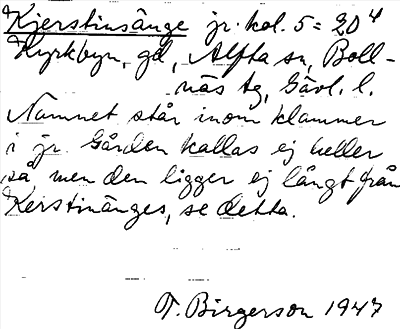 Kjerstinsänge jr. kol. 5 = 20⁴
Kyrkbyn, gd, Alfta sn, Boll-
näs tg, Gävl. l.
Namnet står inom klammer
i jr. Gården kallas ej heller
så men den ligger ej långt från
Kerstinänges, se detta.
T. Birgerson 1947